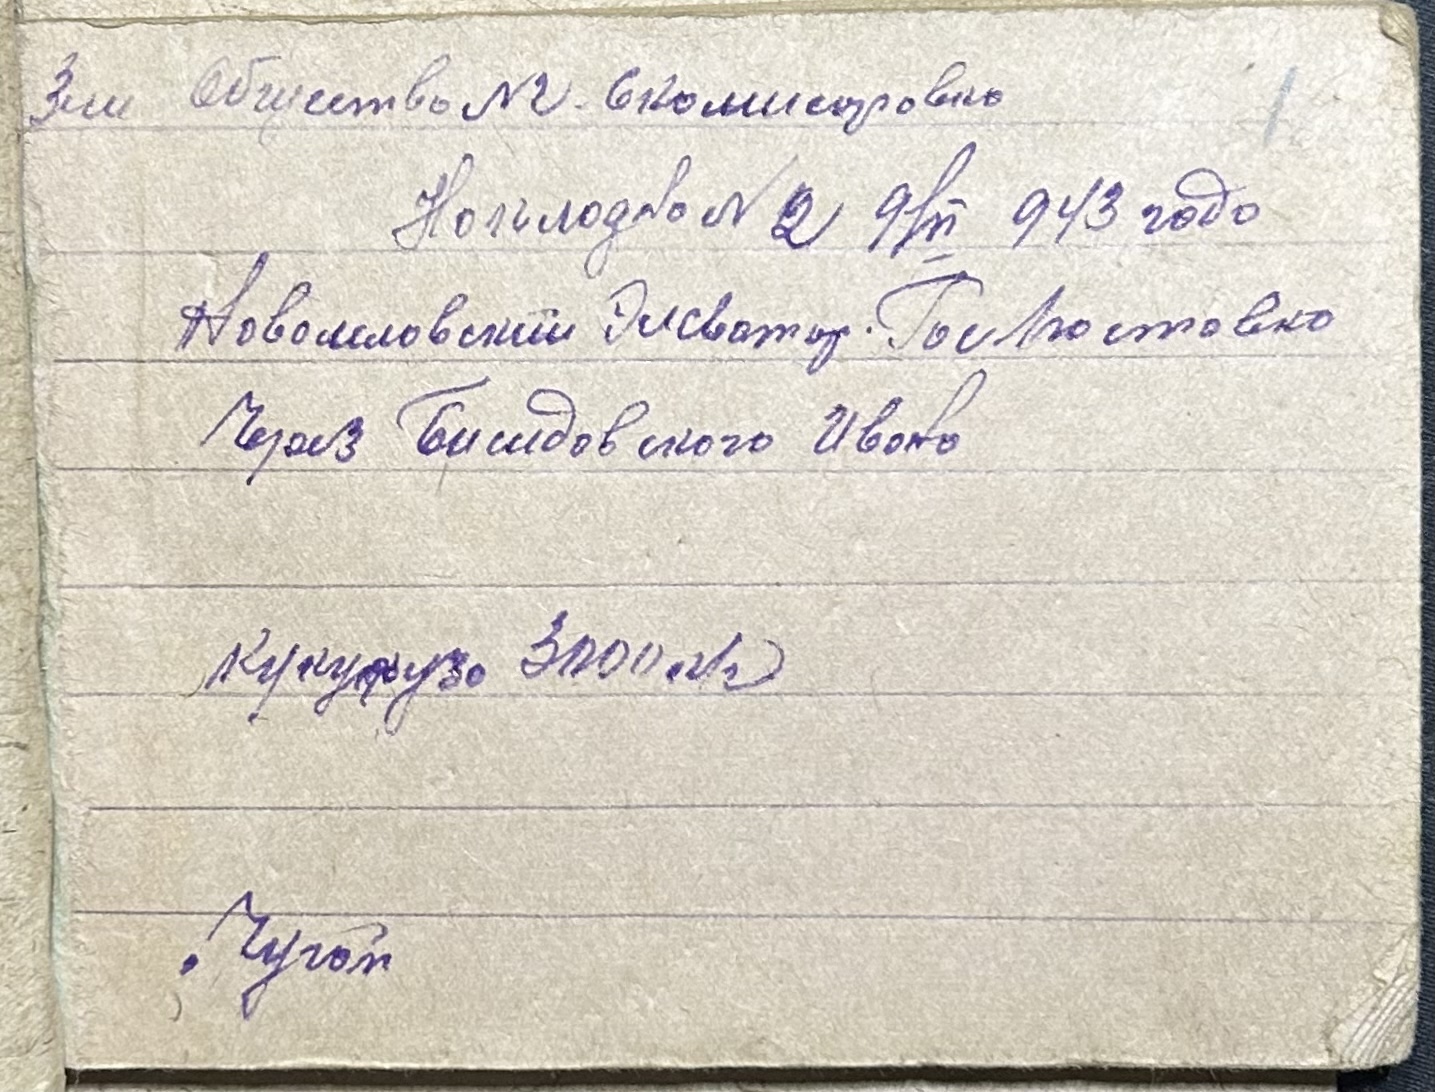 Зем Общество №2. Скомистровка
Накладная №2 9/VII 943 года
Новомловский Элеватор. Гос Поставка
Через Бишовского Ивана
Кукуруза 3000 кг
Чугай